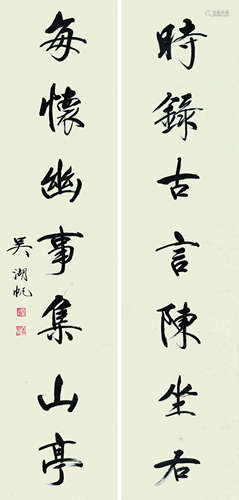 時錄古言陳坐右
每懷幽事集山亭
吳湖帆